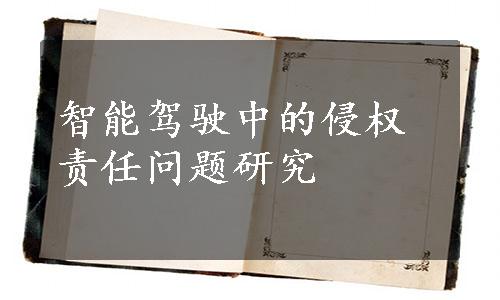 智能驾驶中的侵权
责任问题研究